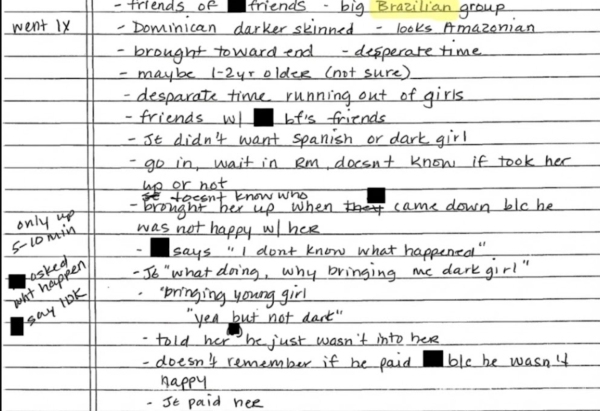 - friends of friends - big Brazilian group
went 1x
- Dominican darker skinned - looks Amazonian
- brought toward end - desperate time
- maybe 1-2yr older (not sure)
- desparate time running out of girls
- friends w/ bf's friends
- JE didn't want Spanish or dark girl
- go in, wait in Rm, doesnt know if took her
up or not
JE doesnt know who
- brought her up when they came down b/c he
was not happy w/ her
only up
5-10 min
- says "I dont know what happened"
asked
wht happen
say IDK
- JE "what doing, why bringing me dark girl"
- "bringing young girl
"yea but not dark"
- told her he just wasn't into her
- doesn't remember if he paid b/c he wasn't
happy
- JE paid her